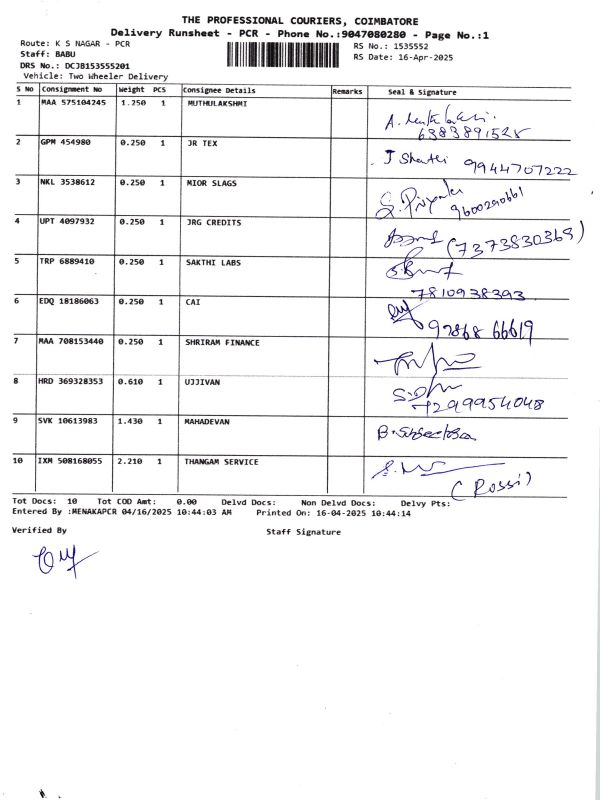 THE PROFESSIONAL COURIERS, COIMBATORE
Delivery Runsheet - PCR - Phone No.:9047080280 - Page No.:1
Route: K S NAGAR - PCR
RS No.: 1535552
Staff: BABU
RS Date: 16-Apr-2025
DRS No.: DCJB153555201
Vehicle: Two Wheeler Delivery
S No Consignment No Weight PCS Consignee Details Remarks Seal & Signature
1 MAA 575104245 1.250 1 MUTHULAKSHMI
6383891525
2 GPM 454980 0.250 1 JR TEX
J Shanthi 9944707222
3 NKL 3538612 0.250 1 MIOR SLAGS
S. Priyanka 9600290661
4 UPT 4097932 0.250 1 JRG CREDITS
(7373830369)
5 TRP 6889410 0.250 1 SAKTHI LABS
7810938393
6 EDQ 18186063 0.250 1 CAI
97868 66619
7 MAA 708153440 0.250 1 SHRIRAM FINANCE
8 HRD 369328353 0.610 1 UJJIVAN
7299954048
9 SVK 10613983 1.430 1 MAHADEVAN
10 IXM 508168055 2.210 1 THANGAM SERVICE
(Rossi)
Tot Docs: 10 Tot COD Amt: 0.00 Delvd Docs: Non Delvd Docs: Delvy Pts:
Entered By :MENAKAPCR 04/16/2025 10:44:03 AM Printed On: 16-04-2025 10:44:14
Verified By Staff Signature